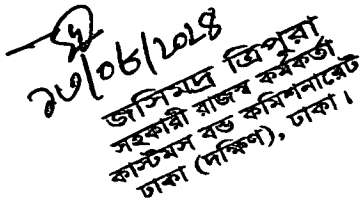 ২৩/০৮/২০২৪
জসিমদ্র ত্রিপুরা
সহকারী রাজস্ব কর্মকর্তা
কাস্টমস বন্ড কমিশনারেট
ঢাকা (দক্ষিণ), ঢাকা।